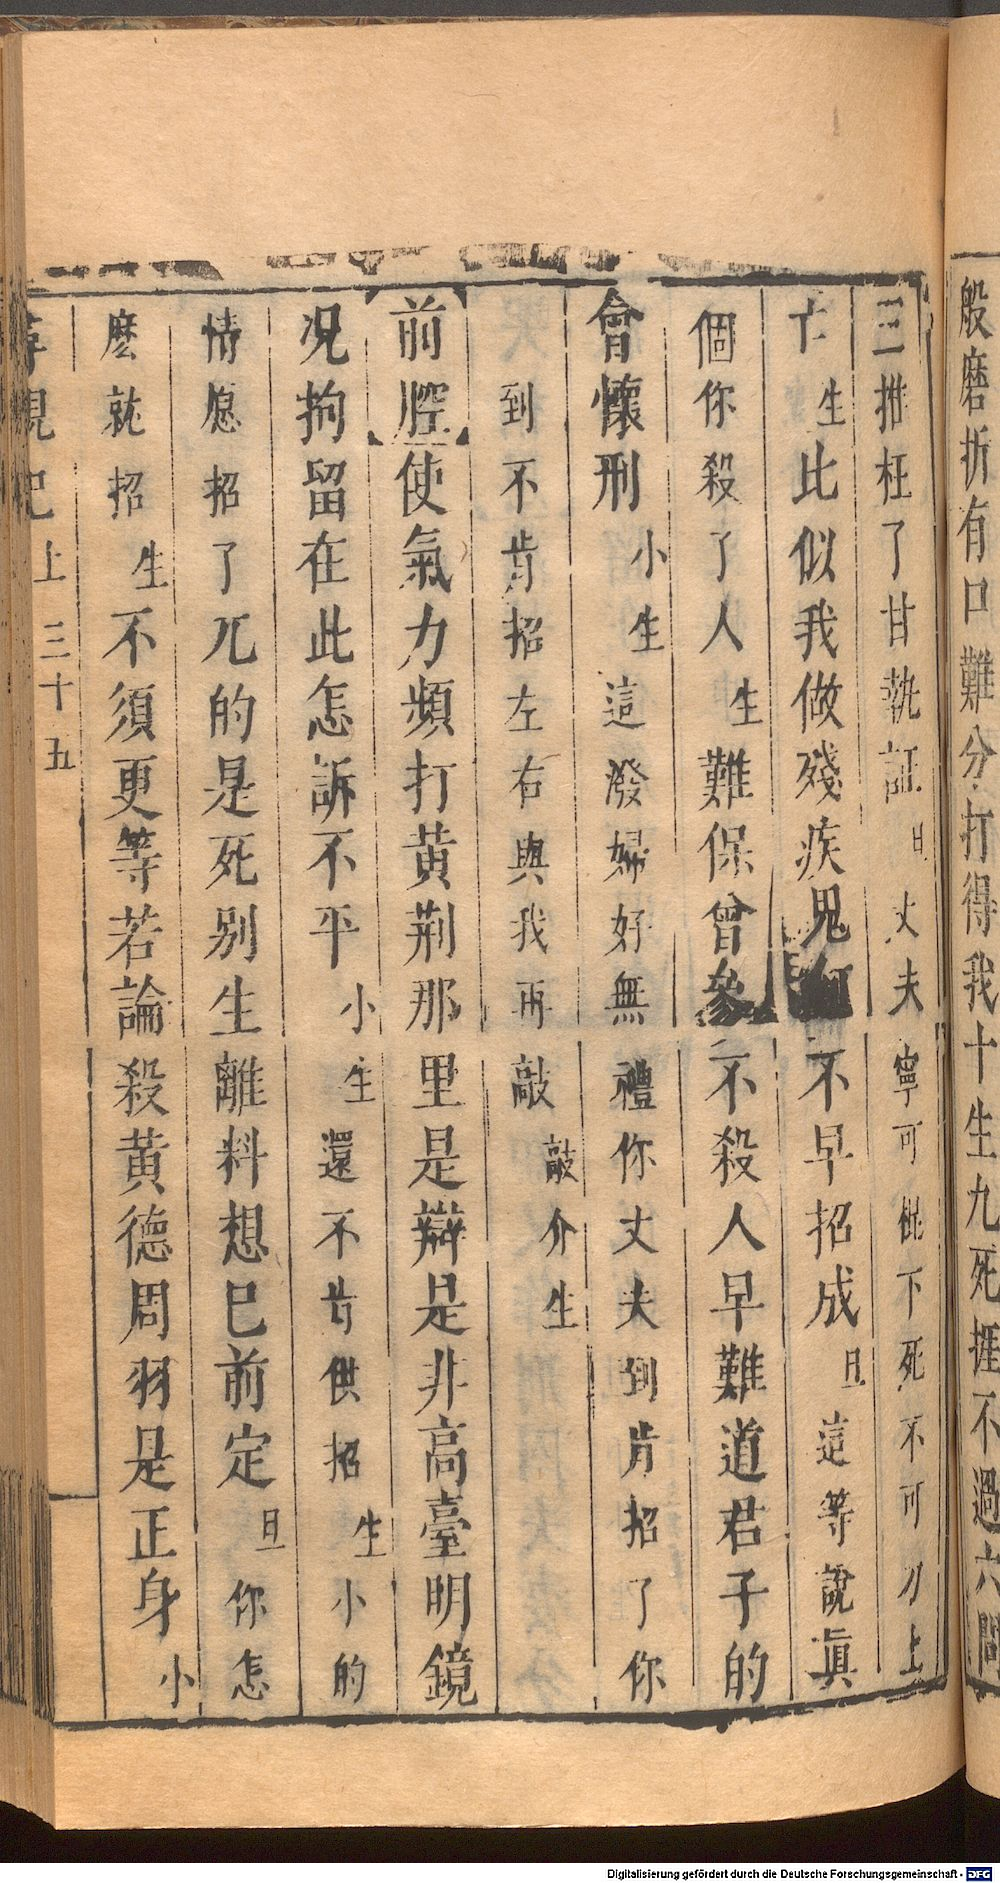 般磨折有口難分打得我十生九死捱不過六問
三推枉了甘執証旦丈夫寧可棍下死不可刀上
亡生比似我做殘疾鬼不早招成旦這等說眞
個你殺了人生難保曾參不殺人早難道君子的
會懷刑小生這潑婦好無禮你丈夫到肯招了你
到不肯招左右與我再敲敲介生
前腔使氣力頻打黃荆那里是辯是非高臺明鏡
况拘留在此怎訴不平小生還不肯供招生小的
情愿招了兀的是死别生離料想巳前定旦你怎
麽就招生不須更等若論殺黃德周羽是正身小
尋親記上三十五
Digitalisierung gefördert durch die Deutsche Forschungsgemeinschaft - DFG